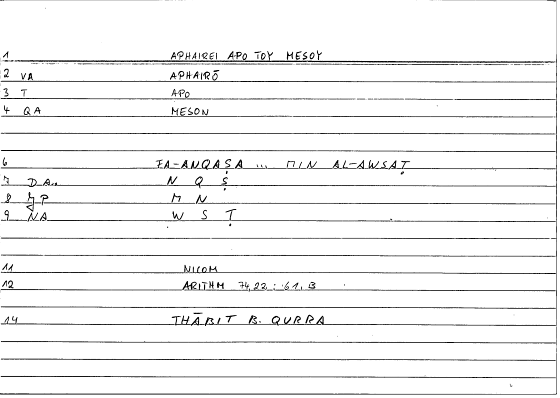 1 APHAIREI APO TOY MESOY
2 VA APHAIRŌ
3 T APO
4 QA MESON
6 FA-ANQAṢA ... MIN AL-AWSAṬ
7 DA.. N Q Ṣ
8 P M N
9 NA W S Ṭ
11 NICOM
12 ARITHM 74,22 : 61, 3
14 THĀBIT B. QURRA